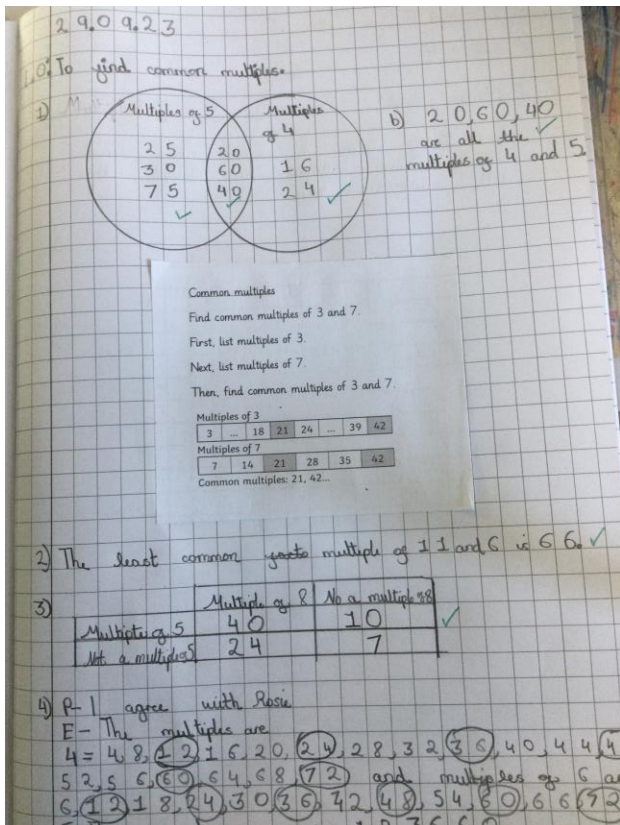 29.09.23
L.O: To find common multiples.
1)
Multiples of 5
25
30
75
20
60
40
Multiples
of 4
16
24
b) 20,60,40
are all the
multiples of 4 and 5
Common multiples
Find common multiples of 3 and 7.
First, list multiples of 3.
Next, list multiples of 7.
Then, find common multiples of 3 and 7.
Multiples of 3
3 ... 18 21 24 ... 39 42
Multiples of 7
7 14 21 28 35 42
Common multiples: 21, 42...
2) The least common multiple of 11 and 6 is 66.
3)
Multiple of 8 No a multiple of 8
Multiple of 5 40 10
Not a multiple of 5 24 7
4) P- I agree with Rosie
E- The multiples are
4= 4,8,12,16,20,24,28,32,36,40,44,4
52,56,60,64,68,72 and multiples of 6 a
6,12,18,24,30,36,42,48,54,60,66,72